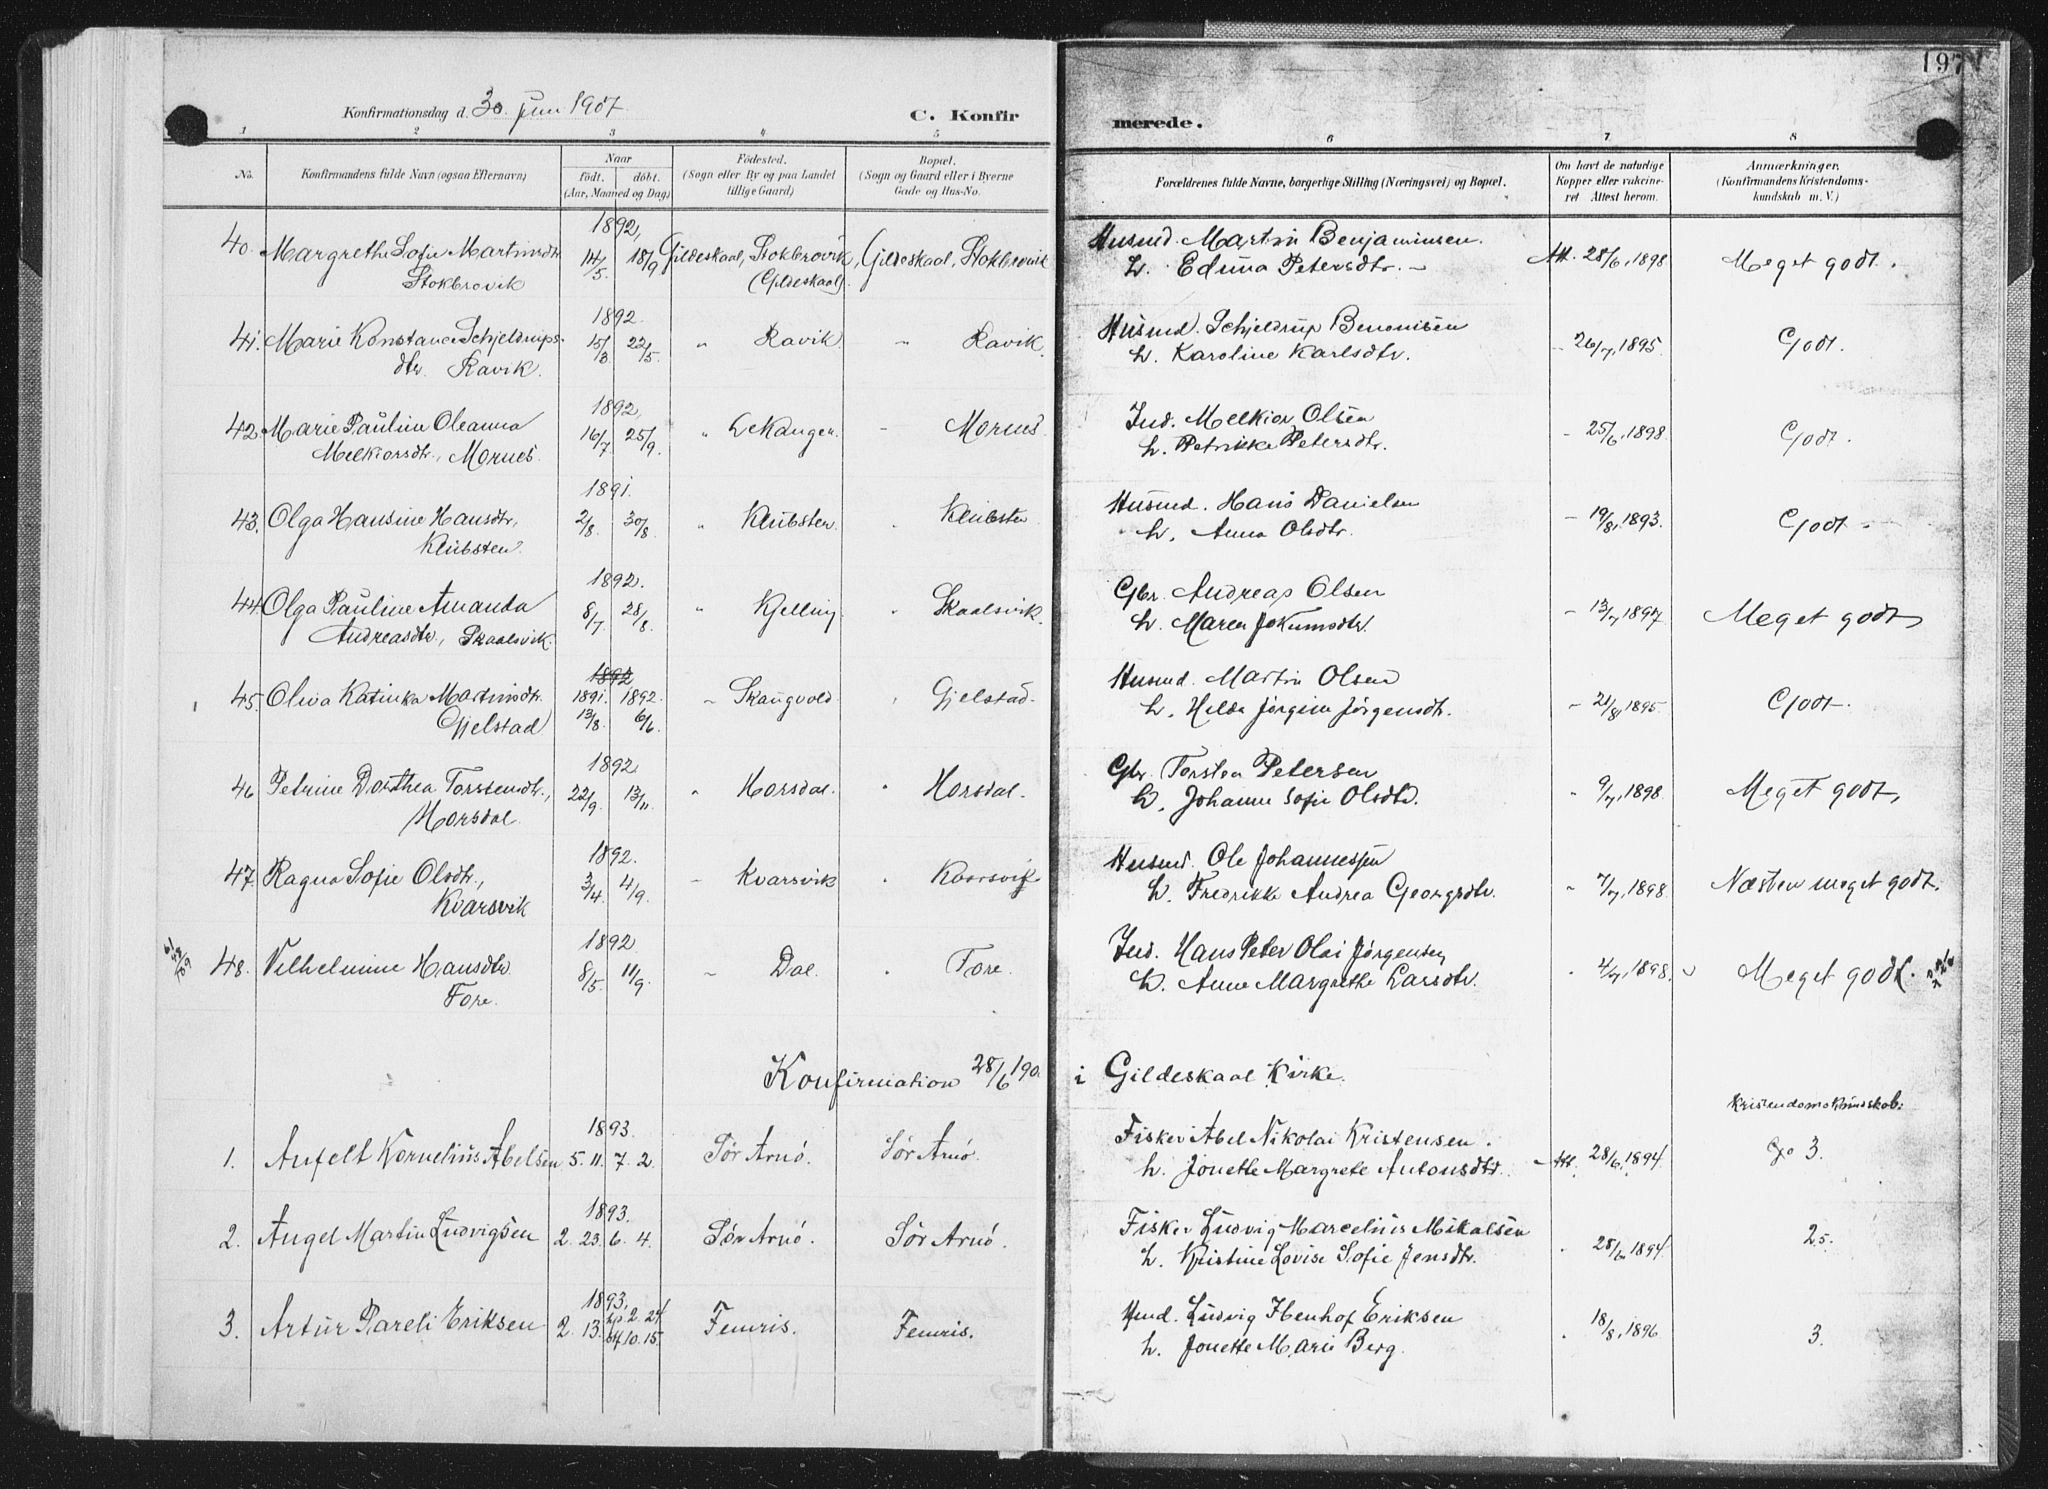 197
Konfirmationsdag d. 30. juni 1907
C. Konfirmerede.
1 2 3 4 5 6 7 8
No.
Konfirmandens fulde Navn (ogsaa Efternavn)
Naar
født. døbt.
(Aar, Maaned og Dag)
Fødested.
(Sogn eller By og paa Landet
tillige Gaard)
Bopæl.
(Sogn og Gaard eller i Byerne
Gade og Hus-No.
Forældrenes fulde Navne, borgerlige Stilling (Næringsvei) og Bopæl.
Om havt de naturlige
Kopper eller vakcine-
ret Attest herom.
Anmærkninger.
(Konfirmandens Kristendoms-
kundskab m. V.)
1892,
40. Margrethe Sofie Martinsdtr. 14/5. 18/9 Gildeskaal, Stokbrovik, Gildeskaal, Stokbrovik
Stokbrovik (Gildeskaal).
Husmd. Martin Benjaminsen.
h. Edina Petersdtr. – Att. 28/6, 1898 Meget godt.
1892.
41. Marie Konstance Schjeldrups- 15/3 22/5. " Ravik. " Ravik.
dtr. Ravik.
Husmd. Schjeldrup Benonisen
h. Karoline Karlsdtr. - 26/7, 1895. Godt.
1892,
42. Marie Pauline Oleanna 16/7 25/9. " Lekanger. - Mornes.
Melkiorsdtr., Mornes.
Ind. Melkior Olsen
h. Petrikke Petersdtr. - 25/6, 1898. Godt.
1891.
43. Olga Hansine Hansdtr, 2/8. 30/8 " Klubsten. " Klubsten
Klubsten.
Husmd. Hans Danielsen
h. Anna Olsdtr. - 19/8, 1893. Godt.
1892.
44. Olga Pauline Amanda 8/7 28/8. " Kjelling. " Skaalsvik.
Andreasdtr., Skaalsvik.
Gbr. Andreas Olsen
h. Maren Jokumsdtr. - 13/7, 1897 Meget godt
1892
45. Oliva Katinka Martinsdtr. 1891. 1892. " Skaugvold " Gjelstad.
Gjelstad 13/8. 6/6.
Husmd. Martin Olsen
h. Hilda Jørgine Jørgensdtr. - 21/8, 1895. Godt.
1892
46 Petrine Dorthea Torstensdtr., 22/9. 13/11. " Horsdal. " Horsdal.
Horsdal.
Gbr. Torsten Petersen
h. Johanne Sofie Olsdtr. " 9/7, 1898 Meget godt,
1892.
47. Ragna Sofie Olsdtr., 3/4. 4/9. - Kvarsvik " Kvarsvik
Kvarsvik
Husmd. Ole Johannessen
h. Fredrikke Andrea Georgsdtr. " 7/7, 1898 Næsten meget godt.
1892
48. Vilhelmine Hansdtr. 8/5. 11/9. - Dal. " Fore.
Fore.
Ind. Hans Peter Olai Jørgensen
h. Anne Margrethe Larsdtr. " 4/7, 1898. Meget godt.
Konfirmation 28/6 190 i Gildeskaal Kirke.
Kristendomskundskab:
1893.
1. Anfelt Kornelius Abelsen 5. 11. 7. 2. Sør Arnø. Sør Arnø.
Fisker Abel Nikolai Kristensen.
h. Jonette Margrete Antonsdtr. - Att. 28/6, 1894. 3.
1893.
2. Angel Martin Ludvigsen 2. 23. 6. 4. Sør Arnø. Sør Arnø.
Fisker Ludvig Marcelius Mikalsen
h. Kristine Lovise Sofie Jensdtr. " 28/6, 1894. 2.5.
1893.
3. Artur Pareli Eriksen 2. 13. 2. 24. Femris. Femris.
10. 15.
Hmd. Ludvig Ibenhof Eriksen
h. Jonette Marie Berg. " 18/8, 1896 3.